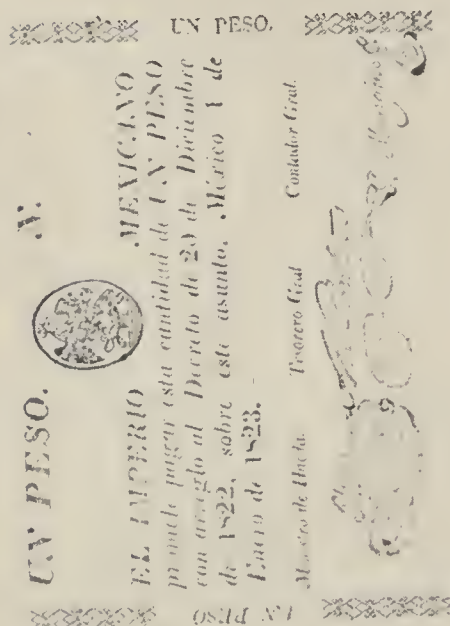 UN PESO.
UN PESO. N.
EL IMPERIO MEXICANO
promete pagar esta cantidad de UN PESO
con arreglo al Decreto de 20 de Diciembre
de 1822, sobre este asunto. México 1 de
Enero de 1823.
Ministro de Hacda. Tesorero Gral Contador Gral.
UN PESO